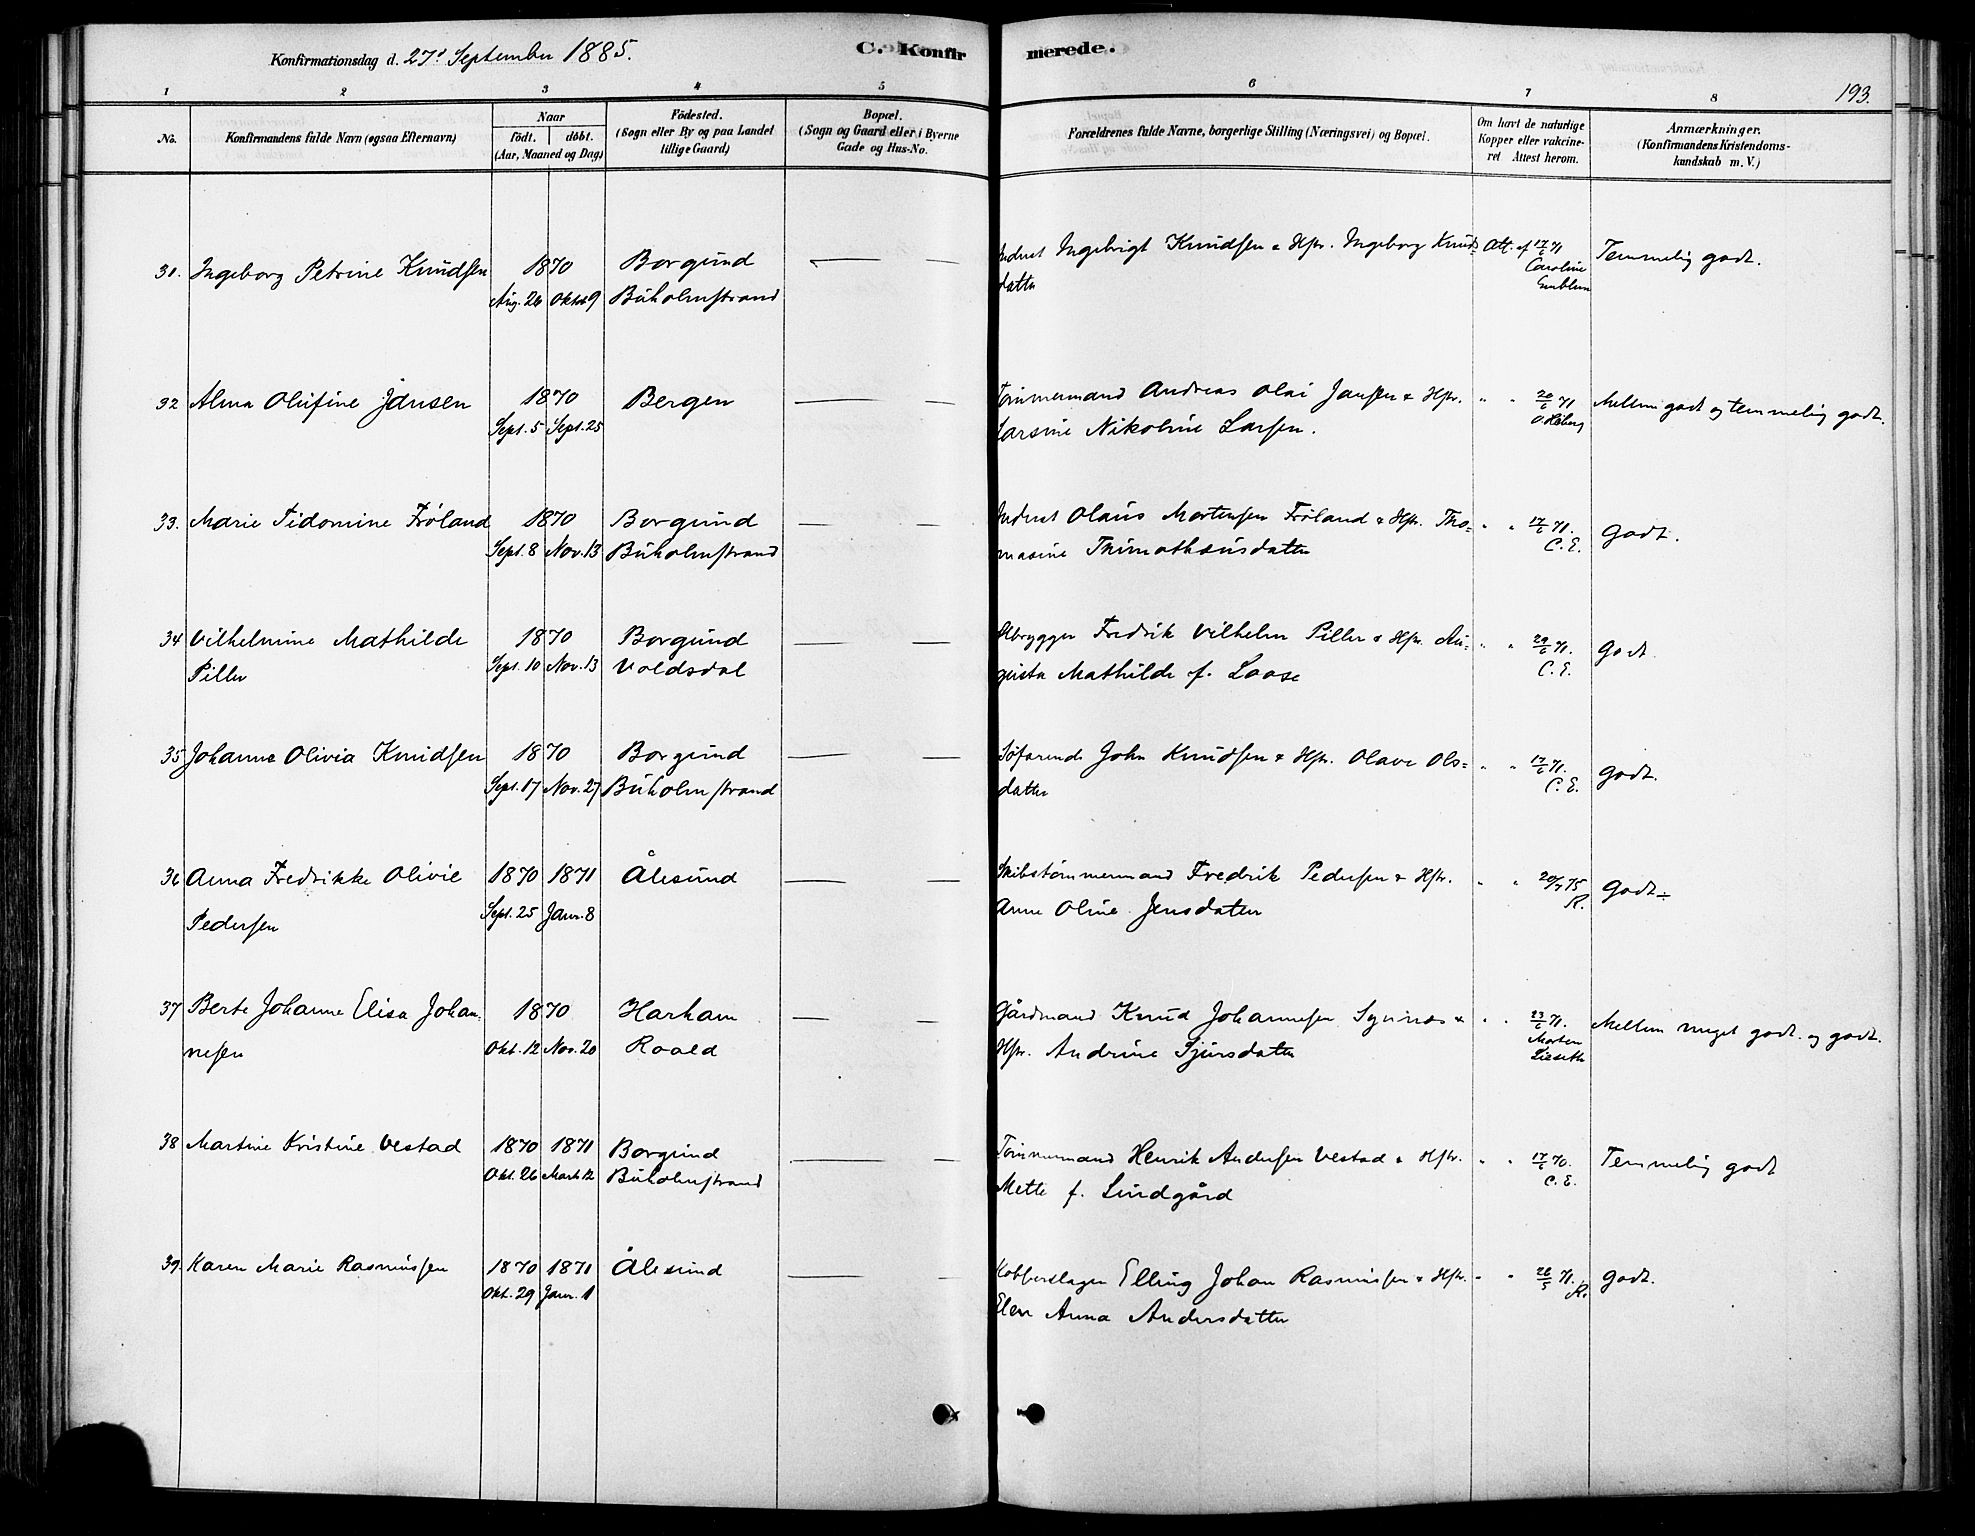 Konfirmationsdag d. 27d September 1885.
C. Konfirmerede.
193.
1 2 3 4 5 6 7 8
No.
Konfirmandens fulde Navn (ogsaa Efternavn)
Naar
födt. döbt.
(Aar, Maaned og Dag)
Födested.
(Sogn eller By og paa Landet
tillige Gaard)
Bopæl.
(Sogn og Gaard eller i Byerne
Gade og Hus-No.
Forældrenes fulde Navne, borgerlige Stilling (Næringsvei) og Bopæl.
Om havt de naturlige
Kopper eller vakcine-
ret Attest herom.
Anmærkninger.
(Konfirmandens Kristendoms-
kundskab m. V.)
31. Ingeborg Petrine Knudsen 1870 Borgund — — Inderst Ingebrigt Knudsen & Hstr. Ingeborg Knuds- Att. af 17/6 71 Temmelig godt.
Aug. 26 Oktob 9 Buholmstrand datter Caroline
Emblem
32 Alma Olufine Jansen 1870 Bergen — — Tømmermand Andreas Olai Jansen & Hstr. " " 20/6 71 Mellem godt og temmelig godt.
Sept. 5 Sept. 25 Larsine Nikoline Larsen.
33. Marie Tidomine Frøland 1870 Borgund — — Inderst Olaus Mortensen Frøland & Hstr. Tho- " " 17/6 71. Godt.
Sept. 8 Nov. 13 Buholmstrand masine Thimothæusdatter C. E.
34 Vilhelmine Mathilde 1870 Borgund — — Ølbrygger Fredrik Vilhelm Piller & Hstr. Au- " " 29/6 71. Godt
Piller Sept. 10 Nov. 13 Voldsdal gusta Mathilde f. Laase C. E.
35 Johanne Olivia Knudsen 1870 Borgund — — Søfarende John Knudsen & Hstr. Olave Ols- " " 17/6 71. Godt.
Sept. 17 Nov. 27 Buholmstrand datter C. E.
36 Anna Fredrikke Olivie 1870 1871 Ålesund — — Skibstømmermand Fredrik Pedersen & Hstr. " " 20/7 75 Godt ÷
Pedersen Sept. 25 Janr. 8 Anne Oline Jensdatter R.
37 Berte Johanne Elisa Johan- 1870 Harham — — Gårdmand Knud Johannesen Synnes & " " 23/6 71. Mellem meget godt og godt.
nesen Okt. 12 Nov. 20 Roald Hstr. Andrine Sjursdatter Morten
38 Martine Kristine Vestad 1870 1871 Borgund — — Tømmermand Henrik Andersen Vestad & Hstr. " " 17/6 70. Temmelig godt
Okt. 26 Marts 12 Buholmstrand Mette f. Lindgård C. E.
39. Karen Marie Rasmussen 1870 1871 Ålesund — — Kobberslager Elling Johan Rasmussen & Hstr. " " 26/5 71. Godt.
Okt. 29 Janr. 1 Elen Anna Andersdatter R.